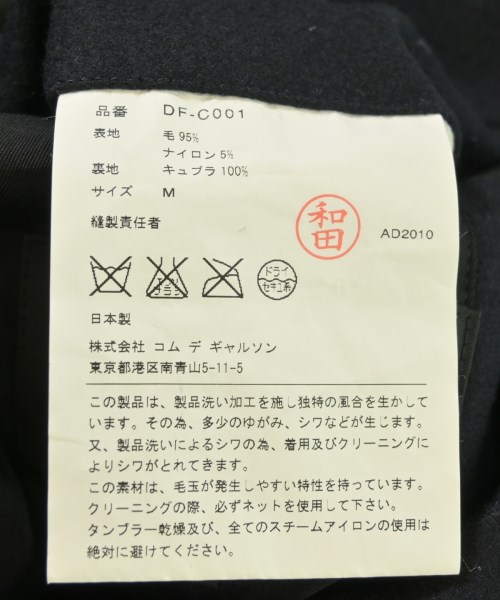 品番 DF-C001
表地 毛 95%
ナイロン 5%
裏地 キュプラ 100%
サイズ M
縫製責任者
和田
AD2010
エンソ
サラシ
ドライ
セキユ系
日本製
株式会社 コム デ ギャルソン
東京都港区南青山5-11-5
この製品は、製品洗い加工を施し独特の風合を生かして
います。その為、多少のゆがみ、シワなどが生じます。
又、製品洗いによるシワの為、着用及びクリーニングに
よりシワがとれてきます。
この素材は、毛玉が発生しやすい特性を持っています。
クリーニングの際、必ずネットを使用して下さい。
タンブラー乾燥及び、全てのスチームアイロンの使用は
絶対に避けてください。